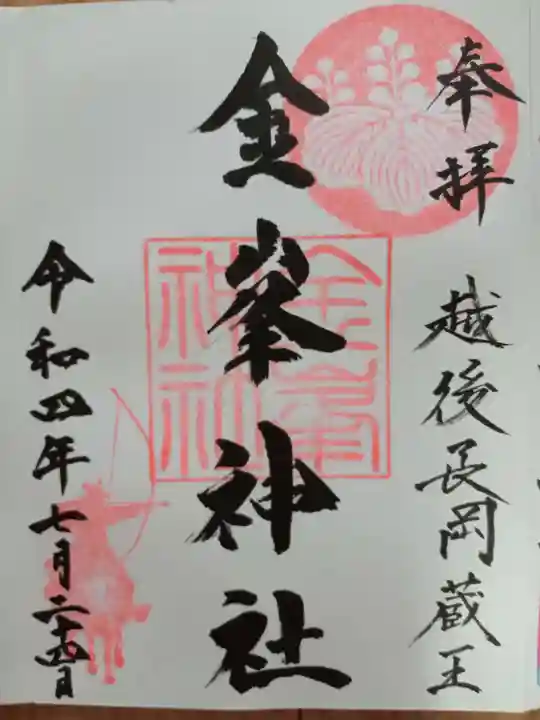 奉拝 越後長岡蔵王
金峯神社
金峯
神社
令和四年七月二十四日